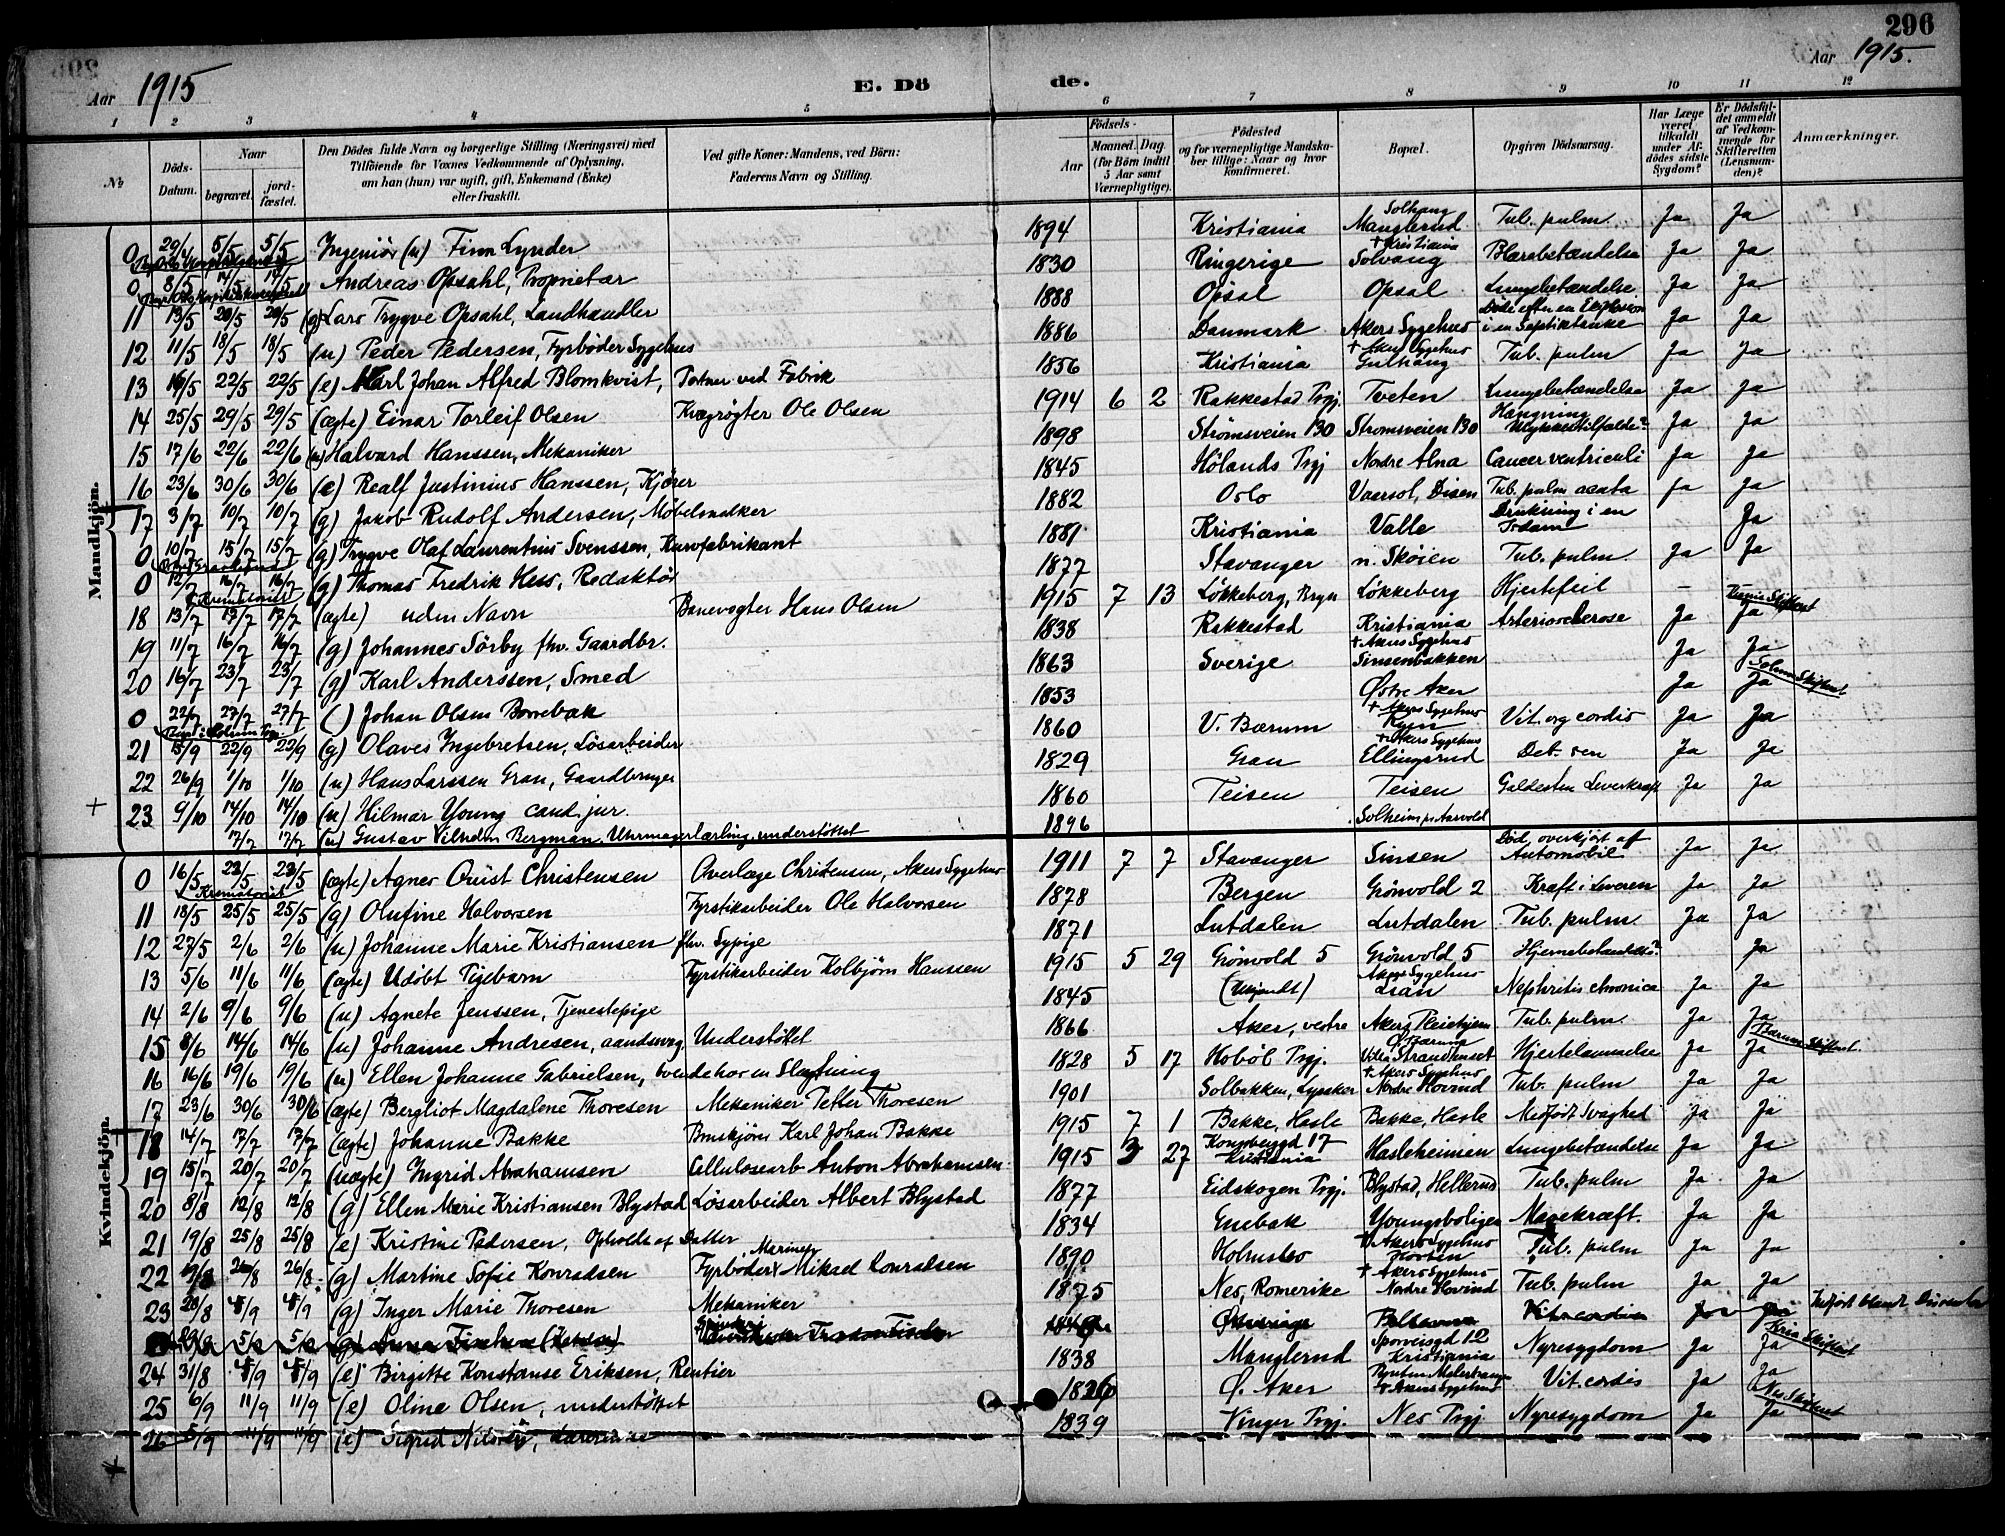 296
Aar 1915
E. Dö de.
Aar 1915.
1 2 3 4 5 6 7 8 9 10 11 12
№
Döds-Datum.
Naar
begravet.
jord-fæstet.
Den Dödes fulde Navn og borgerlige Stilling (Næringsvei) med
Tilföiende for Voxnes Vedkommende af Oplysning,
om han (hun) var ugift, gift, Enkemand (Enke)
eller fraskilt.
Ved gifte Koner: Mandens, ved Börn:
Faderens Navn og Stilling.
Födsels-
Aar
Maaned. Dag.
(for Börn indtil 5 Aar samt Værnepligtige).
Födested
og for værnepligtige Mandska-
ber tillige: Naar og hvor
konfirmeret.
Bopæl.
Opgiven Dödsaarsag.
Har Læge været tilkaldt under Af-dödes sidste Sygdom?
Er Dödsfal-det anmeldt af Vedkom-mende for Skifteretten (Lensman-den)?
Anmærkninger.
Mandkjön.
0 29/4 5/5 5/5 Ingeniör (u) Finn Lynder 1894 Kristiania Solhaug Manglerud + Kristiania Tub. pulm. Ja Ja
0 8/5 14/5 14/5 Andreas Opsahl, Proprietær 1830 Ringerige Solvang Blærebetændelse Ja Ja
11 13/5 20/5 20/5 (g) Lars Trygve Opsahl, Landhandler 1888 Opsal Opsal Lungebetændelse Ja Ja
12 11/5 18/5 18/5 (u) Peder Pedersen, Fyrbøder Sygehus 1886 Danmark Akers Sygehus Döde efter en Explosion i en Saptiktanke Ja Ja
13 16/5 22/5 22/5 (e) Karl Johan Alfred Blomkvist, Portner ved Fabrik 1856 Kristiania + Akers Sygehus Gulhaug Tub. pulm Ja Ja
14 25/5 29/5 29/5 (ægte) Einar Torleif Olsen Kvægrøgter Ole Olsen 1914 6 2 Rakkestad Prgj. Tveten Lungebetændelse Ja Ja
15 17/6 22/6 22/6 (u) Halvard Hanssen, Mekaniker 1898 Strömsveien 130 Strömsveien 130 Hængning Ulykkestilfælde? Ja Ja
16 23/6 30/6 30/6 (e) Realf Justinius Hanssen, Kjörer 1845 Hölands Prgj Nordre Alna Cancer ventriculi Ja Ja
17 3/7 10/7 10/7 (g) Jakob Rudolf Andersen, Møbelsnekker 1882 Oslo Vaarsol, Disen Tub. pulm acuta Ja Ja
0 10/7 15/7 15/7 (g) Trygve Olaf Laurentius Svenssen, Kurvfabrikant 1881 Kristiania Valle Drukning i en Dam Ja
0 12/7 16/7 16/7 (g) Thomas Fredrik Hess, Redaktör 1877 Stavanger n. Skøien Tub. pulm. Ja Ja
Krematoriet
18 13/7 17/7 17/7 (ægte) uden Navn Banevogter Hans Olsen 1915 7 13 Løkkeberg, Bryn Løkkeberg Hjertefeil —
19 11/7 16/7 16/7 (g) Johannes Sörby fhv. Gaardbr. 1838 Rakkestad Kristiania + Akers Sygehus Arteriosclerose Ja Ja
20 16/7 23/7 23/7 (g) Karl Anderssen, Smed 1863 Sverige Sinsenbakken Ja Ja
0 22/7 27/7 27/7 ( ) Johan Olsen Borrebæk 1853 Østre Aker Ja Ja
21 15/9 22/9 22/9 (g) Olaves Ingebretsen, Løsarbeider 1860 V. Bærum + Akers Sygehus Ryen Vit. org cordis Ja Ja
22 26/9 1/10 1/10 (u) Hans Larssen Gran, Gaardbruger 1829 Gran + Akers Sygehus Ellingsrud Deb. sen Ja Ja
23 9/10 14/10 14/10 (u) Hilmar Young cand. jur. 1860 Teisen Teisen Galdesten Leverkræft Ja Ja
17/7 17/7 (u) Gustav Vilhelm Bergman, Uhrmagerlærling, understöttet 1896 Solheim pr. Aarvold
Kvindekjön.
0 16/5 23/5 23/5 (ægte) Agnes Quist Christensen Overlæge Christensen, Akers Sygehus 1911 7 7 Stavanger Sinsen Död, overkjört af Automobil Ja Ja
Krematoriet
11 18/5 25/5 25/5 (g) Olufine Halvorsen Fyrstikarbeider Ole Halvorsen 1878 Bergen Grönvold 2 Kræft i Leveren Ja Ja
12 27/5 2/6 2/6 (u) Johanne Marie Kristiansen fhv. Sypige 1871 Lutdalen Lutdalen Tub. pulm Ja Ja
13 5/6 11/6 11/6 (ægte) Udöbt Pigebarn Fyrstikarbeider Kolbjörn Hanssen 1915 5 29 Grönvold 5 Grönvold 5 Hjernebetændelse? Ja
14 2/6 9/6 9/6 (u) Agnete Jenssen, Tjenestepige 1845 (Ukjendt) Akers Sygehus Nephritis chronica Ja Ja
15 8/6 14/6 14/6 (u) Johanne Andresen, aandssvag Understöttet 1866 Aker, vestre Akers Pleiehjem Tub. pulm. Ja Ja
16 16/6 19/6 19/6 (u) Ellen Johanne Gabrielsen, boende hos en Slægtning 1828 5 17 Hobøl Prgj. Villa Strandhuset Hjertelammelse Ja Ja
17 23/6 30/6 30/6 (ægte) Bergliot Magdalene Thoresen Mekaniker Petter Thoresen 1901 Solbakken, Lysaker + Akers Sygehus Nordre Hovind Tub. pulm Ja Ja
18 14/7 17/7 17/7 (ægte) Johanne Bakke Bruskjörer Karl Johan Bakke 1915 7 1 Bakke, Hasle Bakke, Hasle Medfödt Svaghed Ja Ja
19 15/7 20/7 20/7 (uægte) Ingrid Abrahamsen Cellulosearb. Anton Abrahamsen 1915 3 27 Kristiania Hasleheimen Lungebetændelse Ja Ja
20 8/8 12/8 12/8 (g) Ellen Marie Kristiansen Blystad Løsarbeider Albert Blystad 1877 Eidskogen Prgj. Blystad, Hellerud Tub. pulm Ja Ja
21 19/8 25/8 25/8 (e) Kristine Pedersen, Ophold af Datter 1834 Enebak Youngsboligen Mavekræft. Ja Ja
22 19/8 26/8 26/8 (g) Martine Sofie Konradsen Fyrbøder Marinen Mikael Konradsen 1890 Holmsbo + Akers Sygehus Horten Tub. pulm Ja Ja
23 28/8 4/9 4/9 (g) Inger Marie Thoresen Mekaniker 1875 Nes, Romerike + Akers Sygehus Nordre Hovind Tub. pulm Ja Ja
24 31/8 4/9 4/9 (e) Birgitte Konstanse Eriksen, Rentier 1838 Manglerud Sporveisgd 12 Kristiania Nyresygdom Ja Ja
25 6/9 11/9 11/9 (e) Oline Olsen, understöttet 1826 Ø. Aker + Akers Sygehus Vit. cordis Ja Ja
26 5/9 11/9 11/9 (e) Sigrid Nilsen, 1839 Vinger Prgj. Nes Prgj Nyresygdom Ja Ja